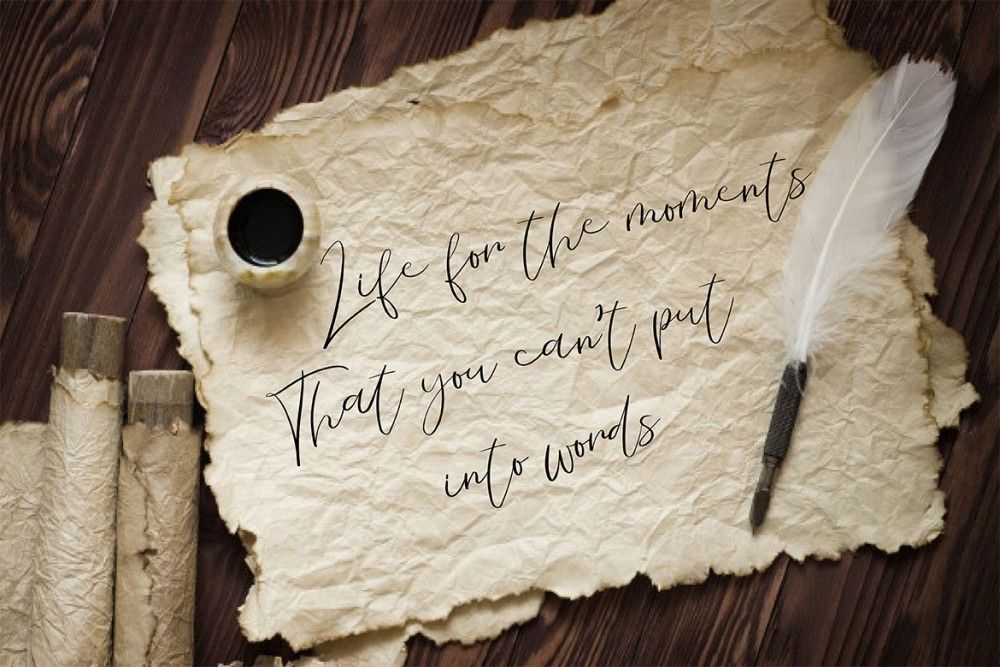 Life for the moments
That you can't put
into words